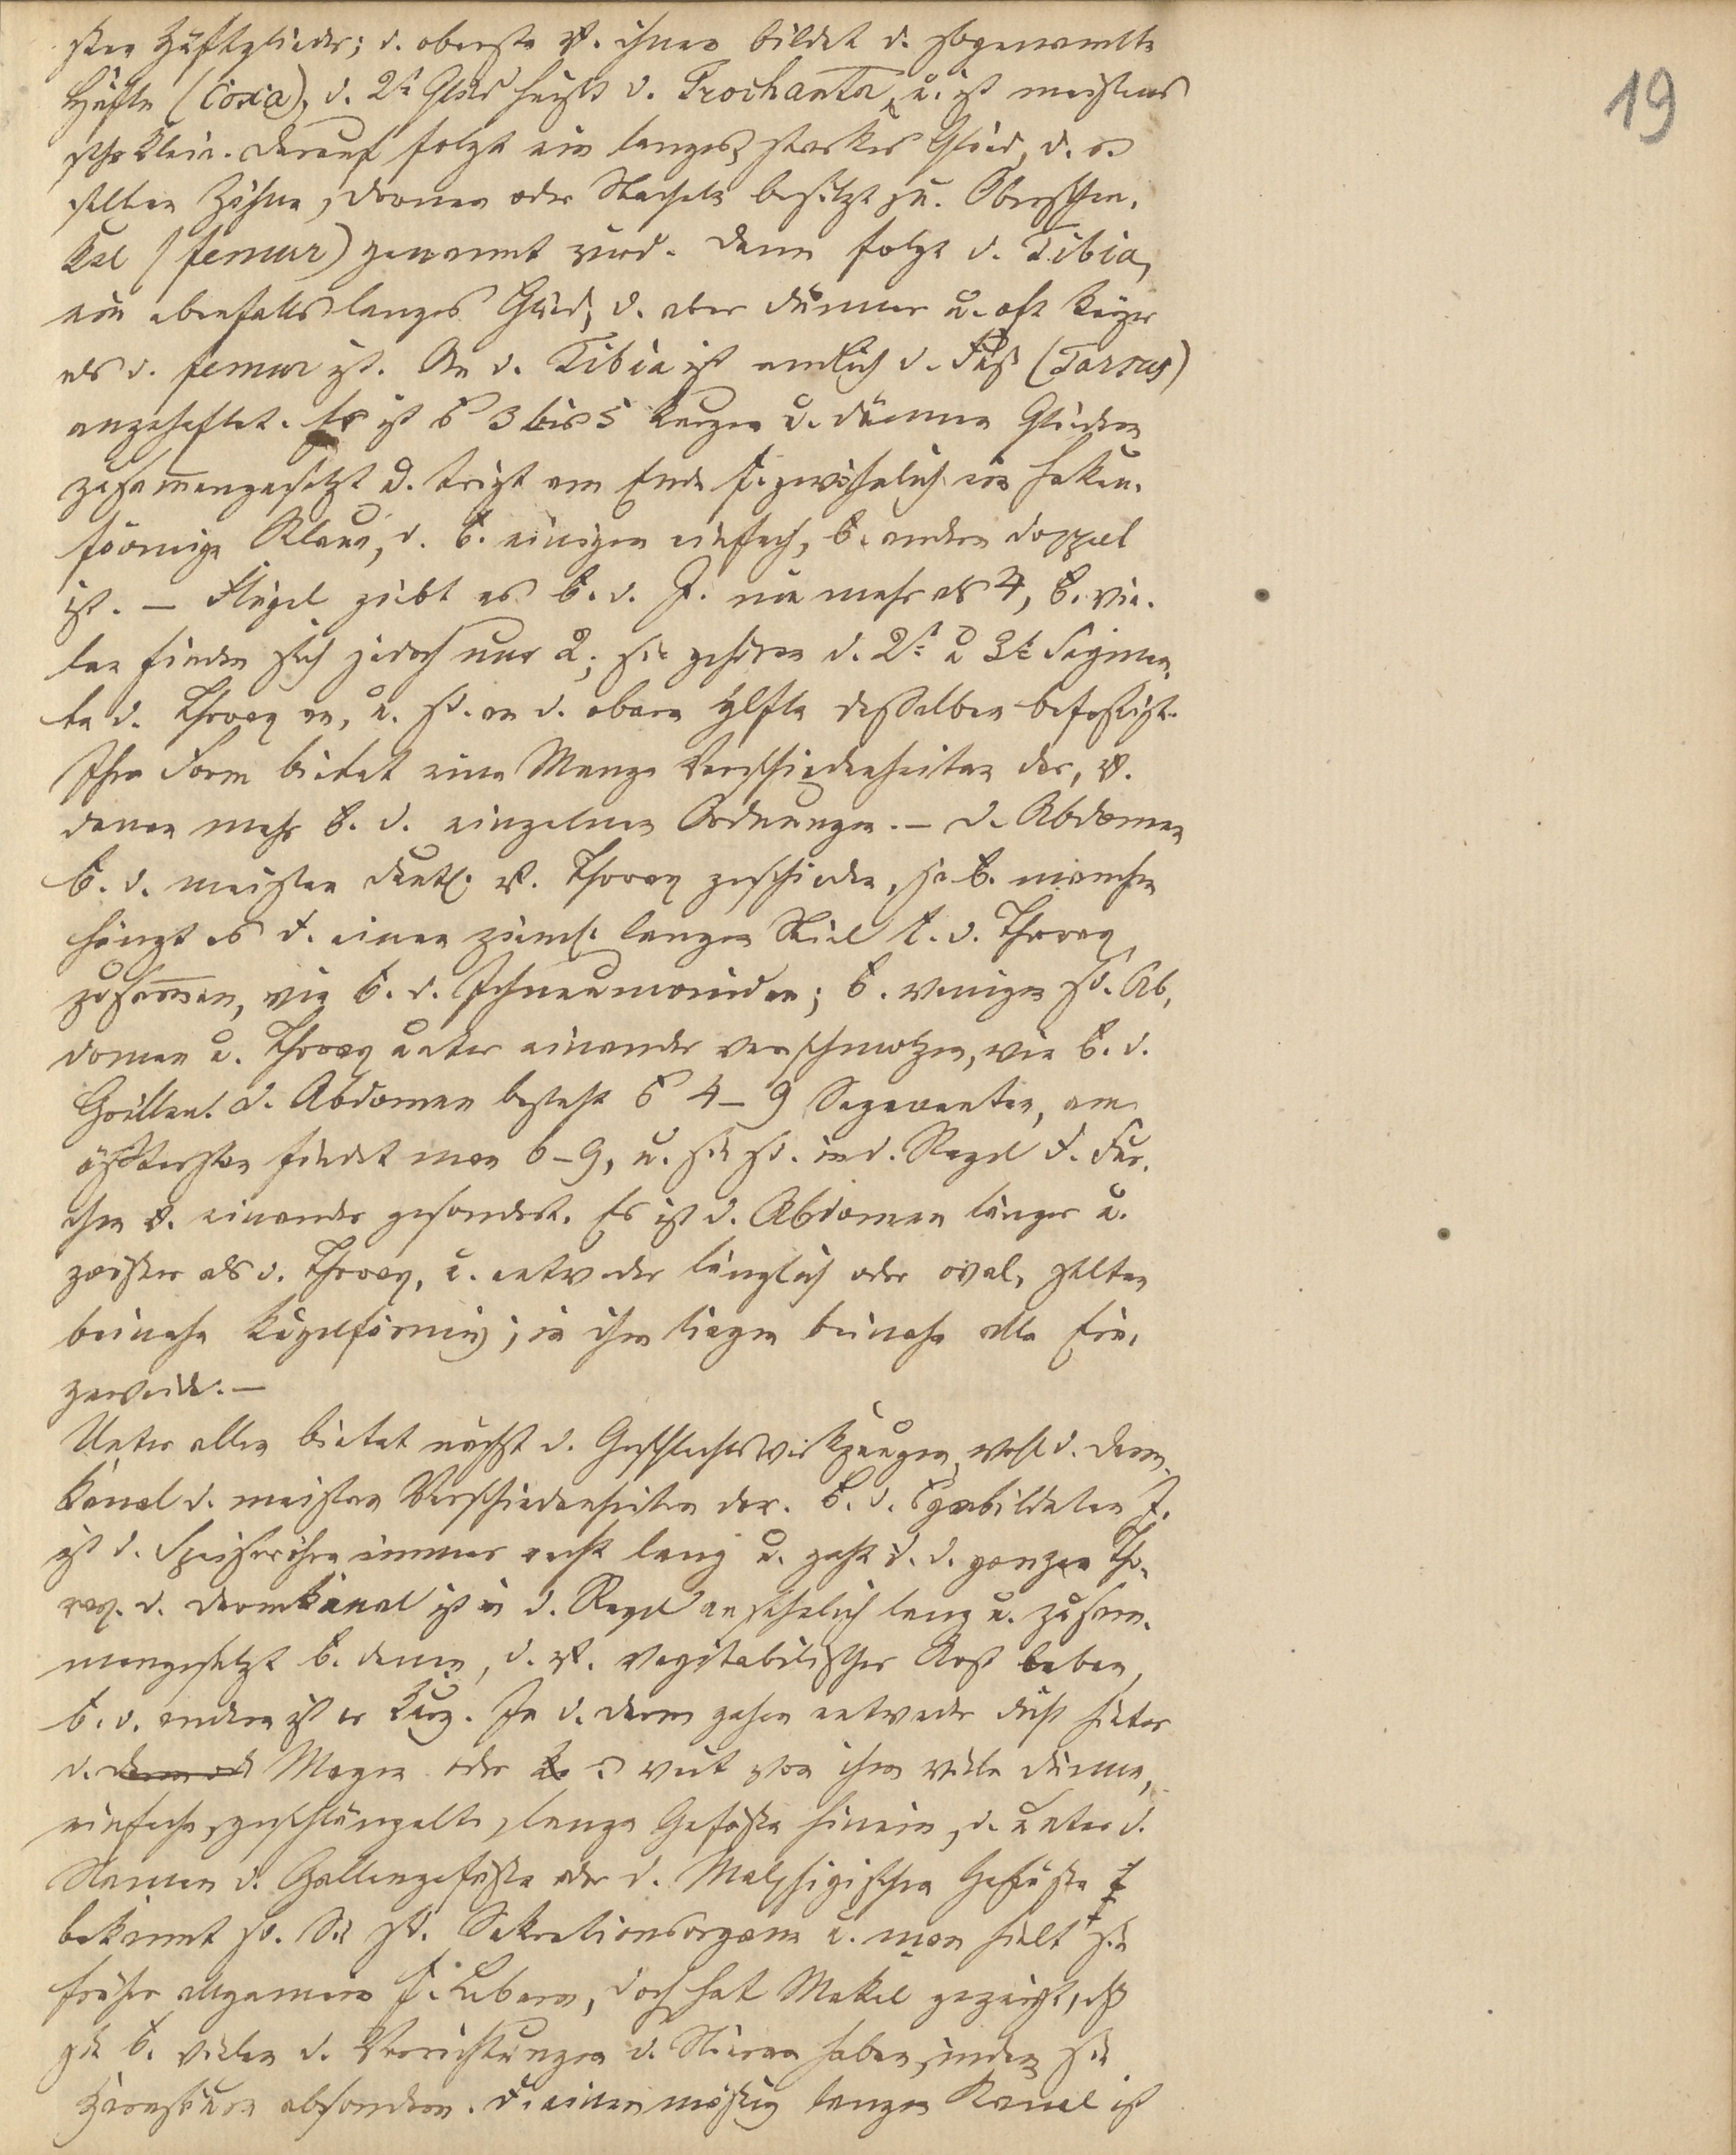 sten Hüftglieder; d. oberste v. ihnen bildet d. sogenannte
Hüfte (Coxa), d. 2te Glied heißt d. Trochanter, u. ist meistens
sehr klein. Darauf folgt ein langes, starkes Glied, d. n.
selten Zähne, Dornen oder Stacheln besitzt u. Oberschen-
kel (femur) genannt wird. Dann folgt d. Tibia,
ein ebenfalls langes Glied, d. aber dünner u. oft kürzer
als d. femur ist. An d. Tibia ist endlich d. Fuß (Tarsus)
angeheftet. Er ist 3 bis 5 kurzen u. dünnen Gliedern
zusammengesetzt u. trägt am Ende gewöhnlich ein haken-
förmige Klaue, d. b. einigen einfach, b. andern doppel
ist. — Flügel giebt es b. d. J. nie mehr als 4, b. vie-
len finden sich jedoch nur 2; sie gehören d. 2t u 3t Segmen-
te d. Thorax an, u. sd. an d. obern Hälfte desselben befestigt.
Ihre Form bietet eine Menge Verschiedenheiten dar, v.
denen mehr b. d. einzelnen Ordnungen. — D. Abdomen
b. d. meisten deutl. v. Thorax geschieden, ja b. manchen
hängt es d. einen ziemlich langen Stiel m. d. Thorax
zusammen, wie b. d. Ichneumoniden; b. wenigen sd. Ab-
domen u. Thorax unter einander verschmolzen, wie b. d.
Grillen. D. Abdomen besteht 4–9 Segmenten, am
öftersten findet man 6–9, u. sie sd. in d. Regel d. Fur-
chen v. einander gesondert. Es ist d. Abdomen länger u.
größer als d. Thorax, u. entweder länglich oder oval, selten
beinahe kugelförmig; in ihm liegen beinahe alle Ein-
geweide. —
Unter allen bietet nächst d. Geschlechtswerkzeugen, wohl d. Darm-
kanal d. meisten Verschiedenheiten dar. B. d. ausgebildeten J.
ist d. Speiseröhre immer recht lang u. geht d. d. ganzen Tho-
rax. D. Darmkanal ist in d. Regel ansehnlich lang u. zusam-
mengesetzt b. denen, d. v. vegitabilischer Kost leben,
b. d. andern ist er kurz. In d. Darm gehen entweder dicht hinter
d. Magen oder n. weit von ihm viele dünne,
einfache, geschlängelte, lange Gefäße hinein, d. unter d.
Namen d. Gallengefäße oder d. Malphigischen Gefäße
bekannt sd. Sie sd. Sekretionsorgane u. man hielt sie
früher allgemein f. Lebern, doch hat Mekel gezeigt, dß
sie b. vielen d. Verrichtungen d. Nieren haben, indem sie
Harnsäure absondern. D. einen mäßig langen Kanal ist
19